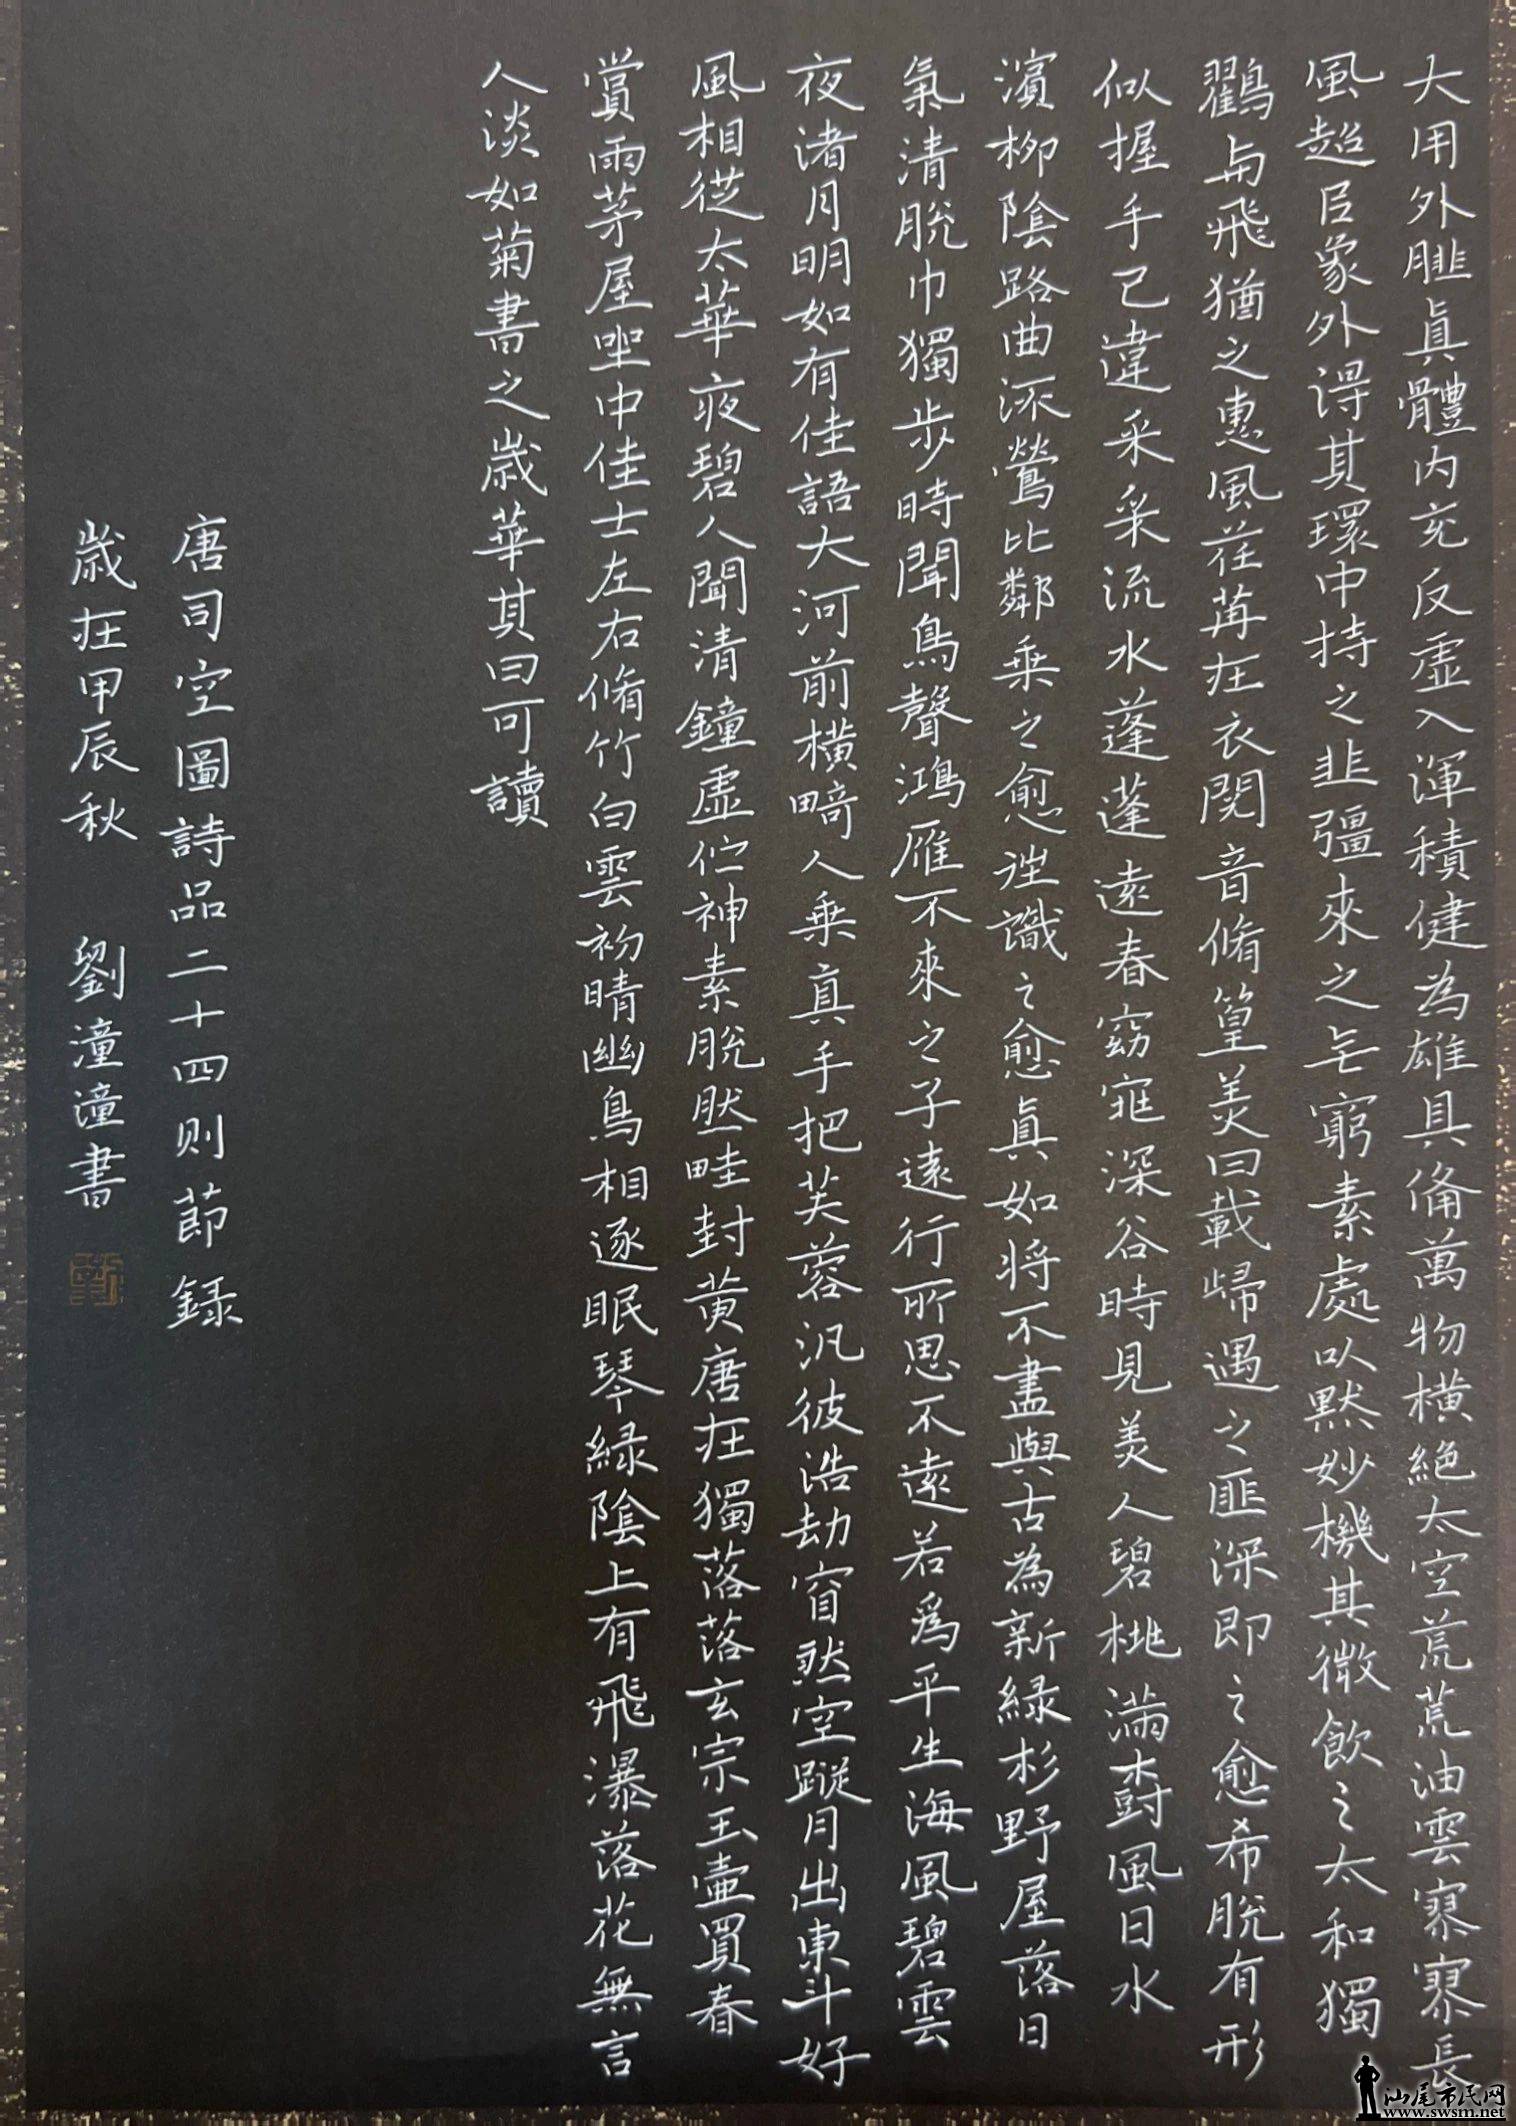 大用外腓真體內充反虛入渾積健為雄具備萬物橫絕太空荒荒油雲寥寥長
風超呂象外得其環中持之非彊來之無窮素處以默妙機其微飲之太和獨
鶴與飛猶之惠風荏苒在衣閱音脩篁美曰載歸遇之匪深即之愈希脫有形
似握手已違采采流水蓬蓬遠春窈窕深谷時見美人碧桃滿樹風日水
濱柳陰路曲流鶯比鄰乘之愈往識之愈真如將不盡與古為新綠杉野屋落日
氣清脫巾獨步時聞鳥聲鴻雁不來之子遠行所思不遠若為平生海風碧雲
夜渚月明如有佳語大河前橫畸人乘真手把芙蓉汎彼浩劫窅然空蹤月出東斗好
風相從太華夜碧人聞清鐘虛佇神素脫然畦封黃唐在獨落落玄宗玉壺買春
賞雨茅屋坐中佳士左右脩竹白雲初晴幽鳥相逐眠琴綠陰上有飛瀑落花無言
人淡如菊書之歲華其曰可讀
唐司空圖詩品二十四則節錄
歲在甲辰秋 劉潼潼書
汕尾市民网
www.swsm.net